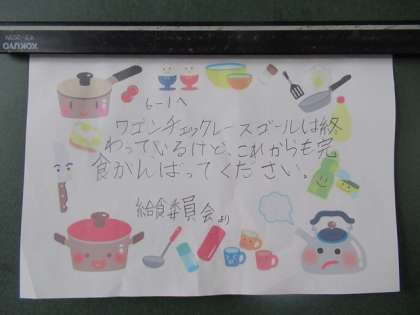 KOKUYO
6-1へ
ワゴンチェックレースゴールは終
わっているけど、これからも完
食がんばってください。
給食委員会より